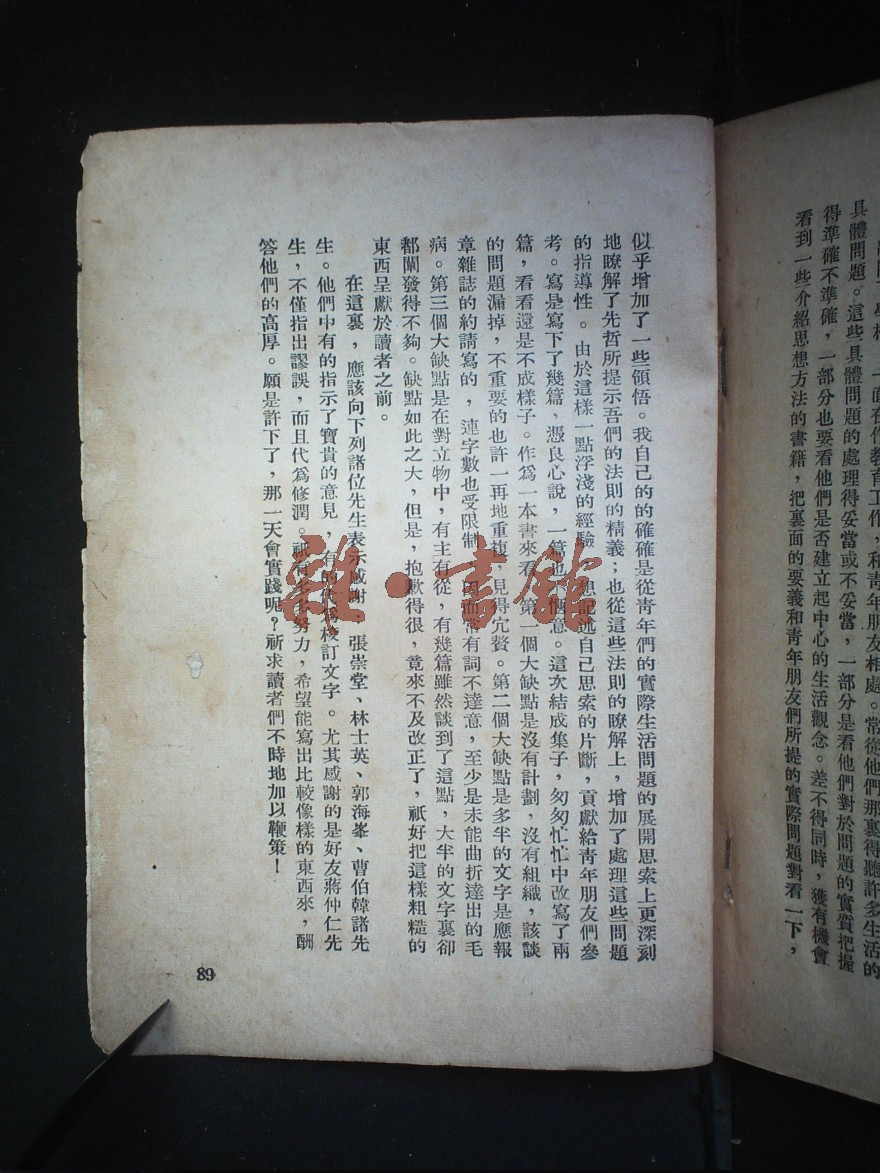 具體問題。這些具體問題的處理得妥當或不妥當,一部分是看他們對於問題的實質把握
得準確不準確,一部分也要看他們是否建立起中心的生活觀念。差不得同時,獲有機會
看到一些介紹思想方法的書籍,把裏面的要義和靑年朋友們所提的實際問題對看一下,
似乎增加了一些領悟。我自己的的確確是從靑年們的實際生活問題的展開思索上更深刻
地瞭解了先哲所提示吾們的法則的精義;也從這些法則的瞭解上,增加了處理這些問題
的指導性。由於這樣一點浮淺的經驗,想記述自己思索的片斷,貢獻給靑年朋友們參
考。寫是寫下了幾篇,憑良心說,一篇也不愜意。這次結成集子,匆匆忙忙中改寫了兩
篇,看看還是不成樣子。作爲一本書來看,第一個大缺點是沒有計劃,沒有組織,該談
的問題漏掉,不重要的也許一再地重複,見得宂贅。第二個大缺點是多半的文字是應報
章雜誌的約請寫的,連字數也受限制,因而常有詞不達意,至少是未能曲折達出的毛
病。第三個大缺點是在對立物中,有主有從,有幾篇雖然談到了這點,大半的文字裏卻
都闡發得不夠。缺點如此之大,但是,抱歉得很,竟來不及改正了,祇好把這樣粗糙的
東西呈獻於讀者之前。
在這裏,應該向下列諸位先生表示感謝 張崇堂、林士英、郭海峯、曹伯韓諸先
生。他們中有的指示了寶貴的意見,有的代爲校訂文字。尤其感謝的是好友蔣仲仁先
生,不僅指出謬誤,而且代爲修潤。祇有多多努力,希望能寫出比較像樣的東西來,酬
答他們的高厚。願是許下了,那一天會實踐呢?祈求讀者們不時地加以鞭策!
89
雜·書館